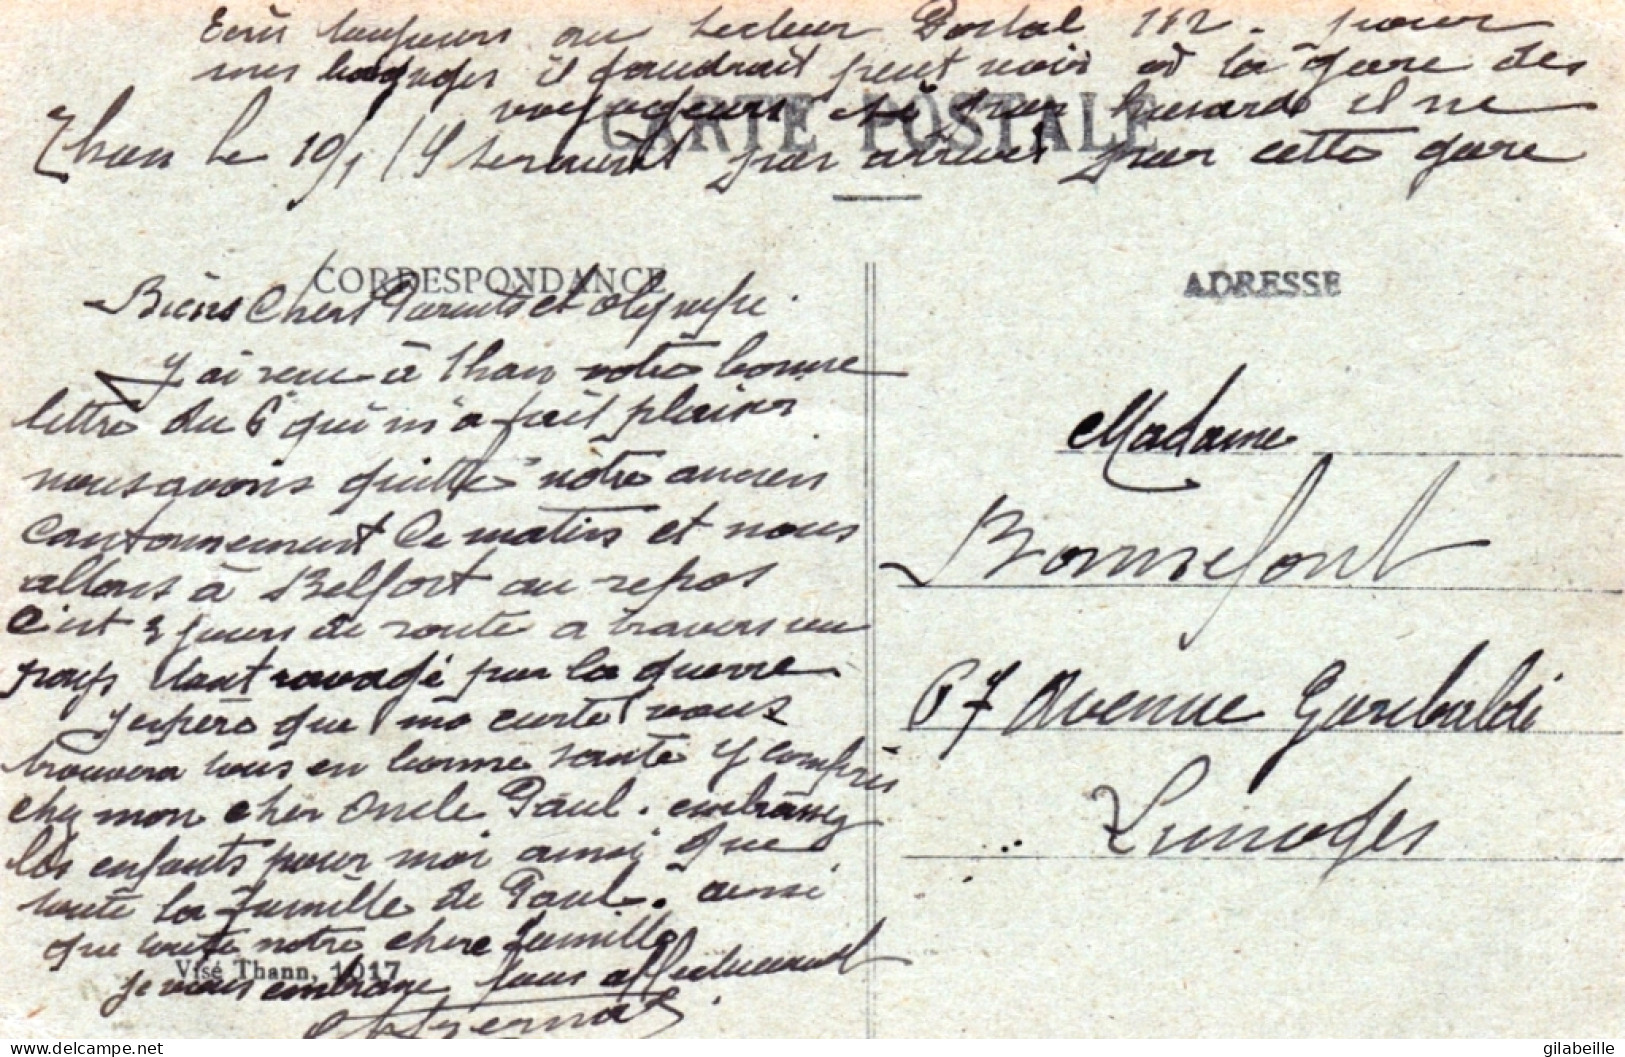 Ecris toujours au Secteur Postal 162. pour
mes bagages il faudrait peut voir à la gare des
voyageurs si par hasard il ne
CARTE POSTALE
Than le 10/1/19 seraient pas arrivet par cette gare
CORRESPONDANCE
Biens Chers Parents et Olympe.
J'ai reçu à Than votre bonne
lettre du 6 qui m'a fait plaisir
nous avons quitté notre ancien
cantonnement ce matin et nous
allons à Belfort au repos
C'est 3 jours de route a travers un
pays tout ravagé par la guerre
J'espère que ma carte vous
trouvera tous en bonne santé y compris
chez mon cher Oncle Paul. embrassez
les enfants pour moi ainsi que
toute la famille de Paul. ainsi
que toute notre chere famille
Visé Thann, 1917
je vous embrasse tous affectueusement
ADRESSE
Madame
Bonnefont
67 Avenue Garibaldi
Limoges
gilabeille